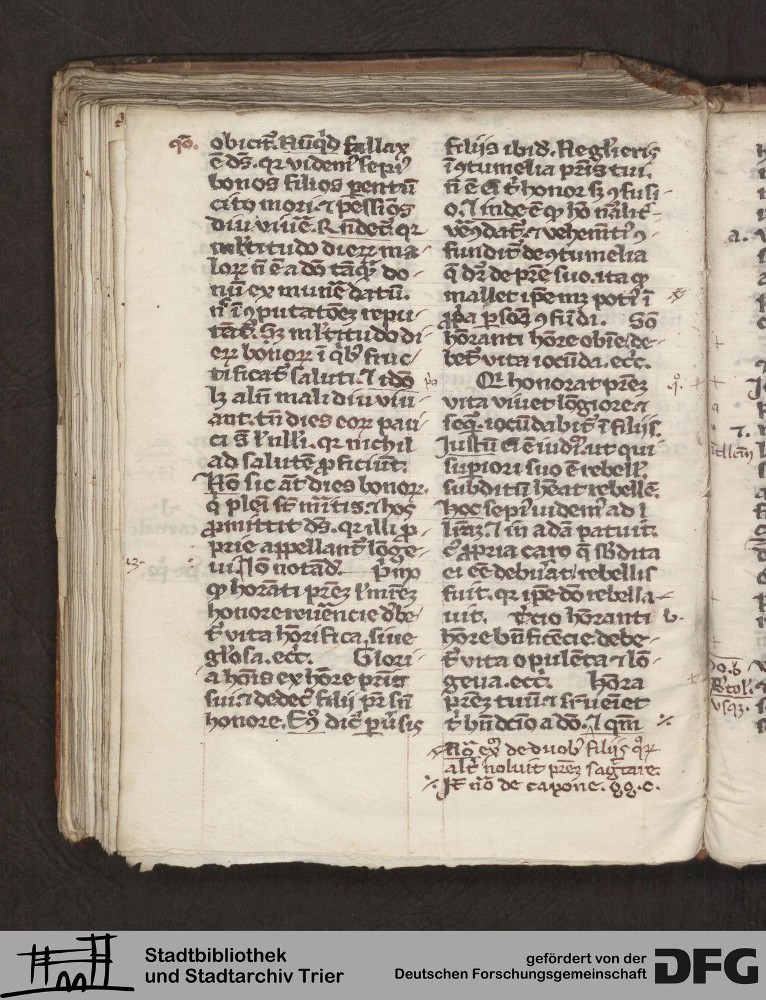 qō.
obicit᷑. Nūq̄d fallax
ē ds̄. qꝛ videmꝰ sepiꝰ
bonos filios parentū
cito mori. ⁊ pessīos
diu viuē̄. R̄ndet᷑. qꝛ
ml̄titudo dieꝝ ma-
loꝝ nō ē a dō tāq̄ do-
nū ex munē datū.
nō ī ꝯputatōeꝫ repu-
tat᷑. Sꝫ ml̄titudo di-
eꝝ bonoꝝ ī qͥbꝰ fruc-
tificat᷑ saluti. ⁊ ido
lꝫ alīi mali diu viū-
ant. tn̄ dies eoꝝ pau-
ci sūt l̄ nll̄i. qꝛ nichil
ad salutē ꝓficiūt.
Nō sic aūt dies bonoꝝ.
qͥ pleī sūt mītis. ⁊ hos
ꝓmittit ds̄. qꝛ illi ꝓ-
prie appellant᷑ lōge-
ui. Iō notād. pͥmo
ꝙ horāti prēꝫ l̄ mrēꝫ
honore reuēncie dēbe-
t᷑ vita hōrifica, siue
gl̄osa. ecc̄. Glori-
a hōis ex hōre prīs
sui. ⁊ dedecꝰ filij pr̄ sn̄
honore. Eꝰ dic̄ pat̄ sis
filijs ibid. Ne glieris
ī ꝯtumelia prīs tui.
nō ē tͥ honor sꝫ ꝯfusi-
o. ⁊ inde ē ꝙ hō nāliť
fundit᷑ de ꝯtumelia
q̄ dr̄ de prē suo. ita ꝙ
mallet ipemꝫ potiꝰ ī
ꝓpa psōa ꝯfūdi. Sc̄o
hōranti hōre obīe de-
bet᷑ vita iocūda. ecc̄.
Qͥ honorat prēꝫ
vita viuet lōgiore. ⁊
seqͥ. iocūdabit᷑ ī filijs.
Iustū ei ē iudꝰ. ut qui
supiori suo ē rebell᷑.
subditū hēat rebellē.
hoc sepiꝰ videmꝰ ad l
līaꝫ. ⁊ in adā patuit.
cͥ ꝓpria caro q̄ sb̄dita
ei eē debuat, rebellis
fuit. qꝛ ipe dō rebella-
uit. tͥcio hōranti
hōre bn̄ficēcie debe-
t᷑ vita opulēta ⁊ lō-
geua. ecc̄. hōra
prēꝫ tuū. ⁊ suꝑueiet
tͥ bn̄dcīo a dō. ⁊ qm̄
Nō exꝰ de duobꝰ filijs qoꝝ
alt᷑ noluit prēꝫ sagittare.
It nō de capone. gg. c.
a.
b.
Stadtbibliothek
und Stadtarchiv Trier
gefördert von der
Deutschen Forschungsgemeinschaft
DFG